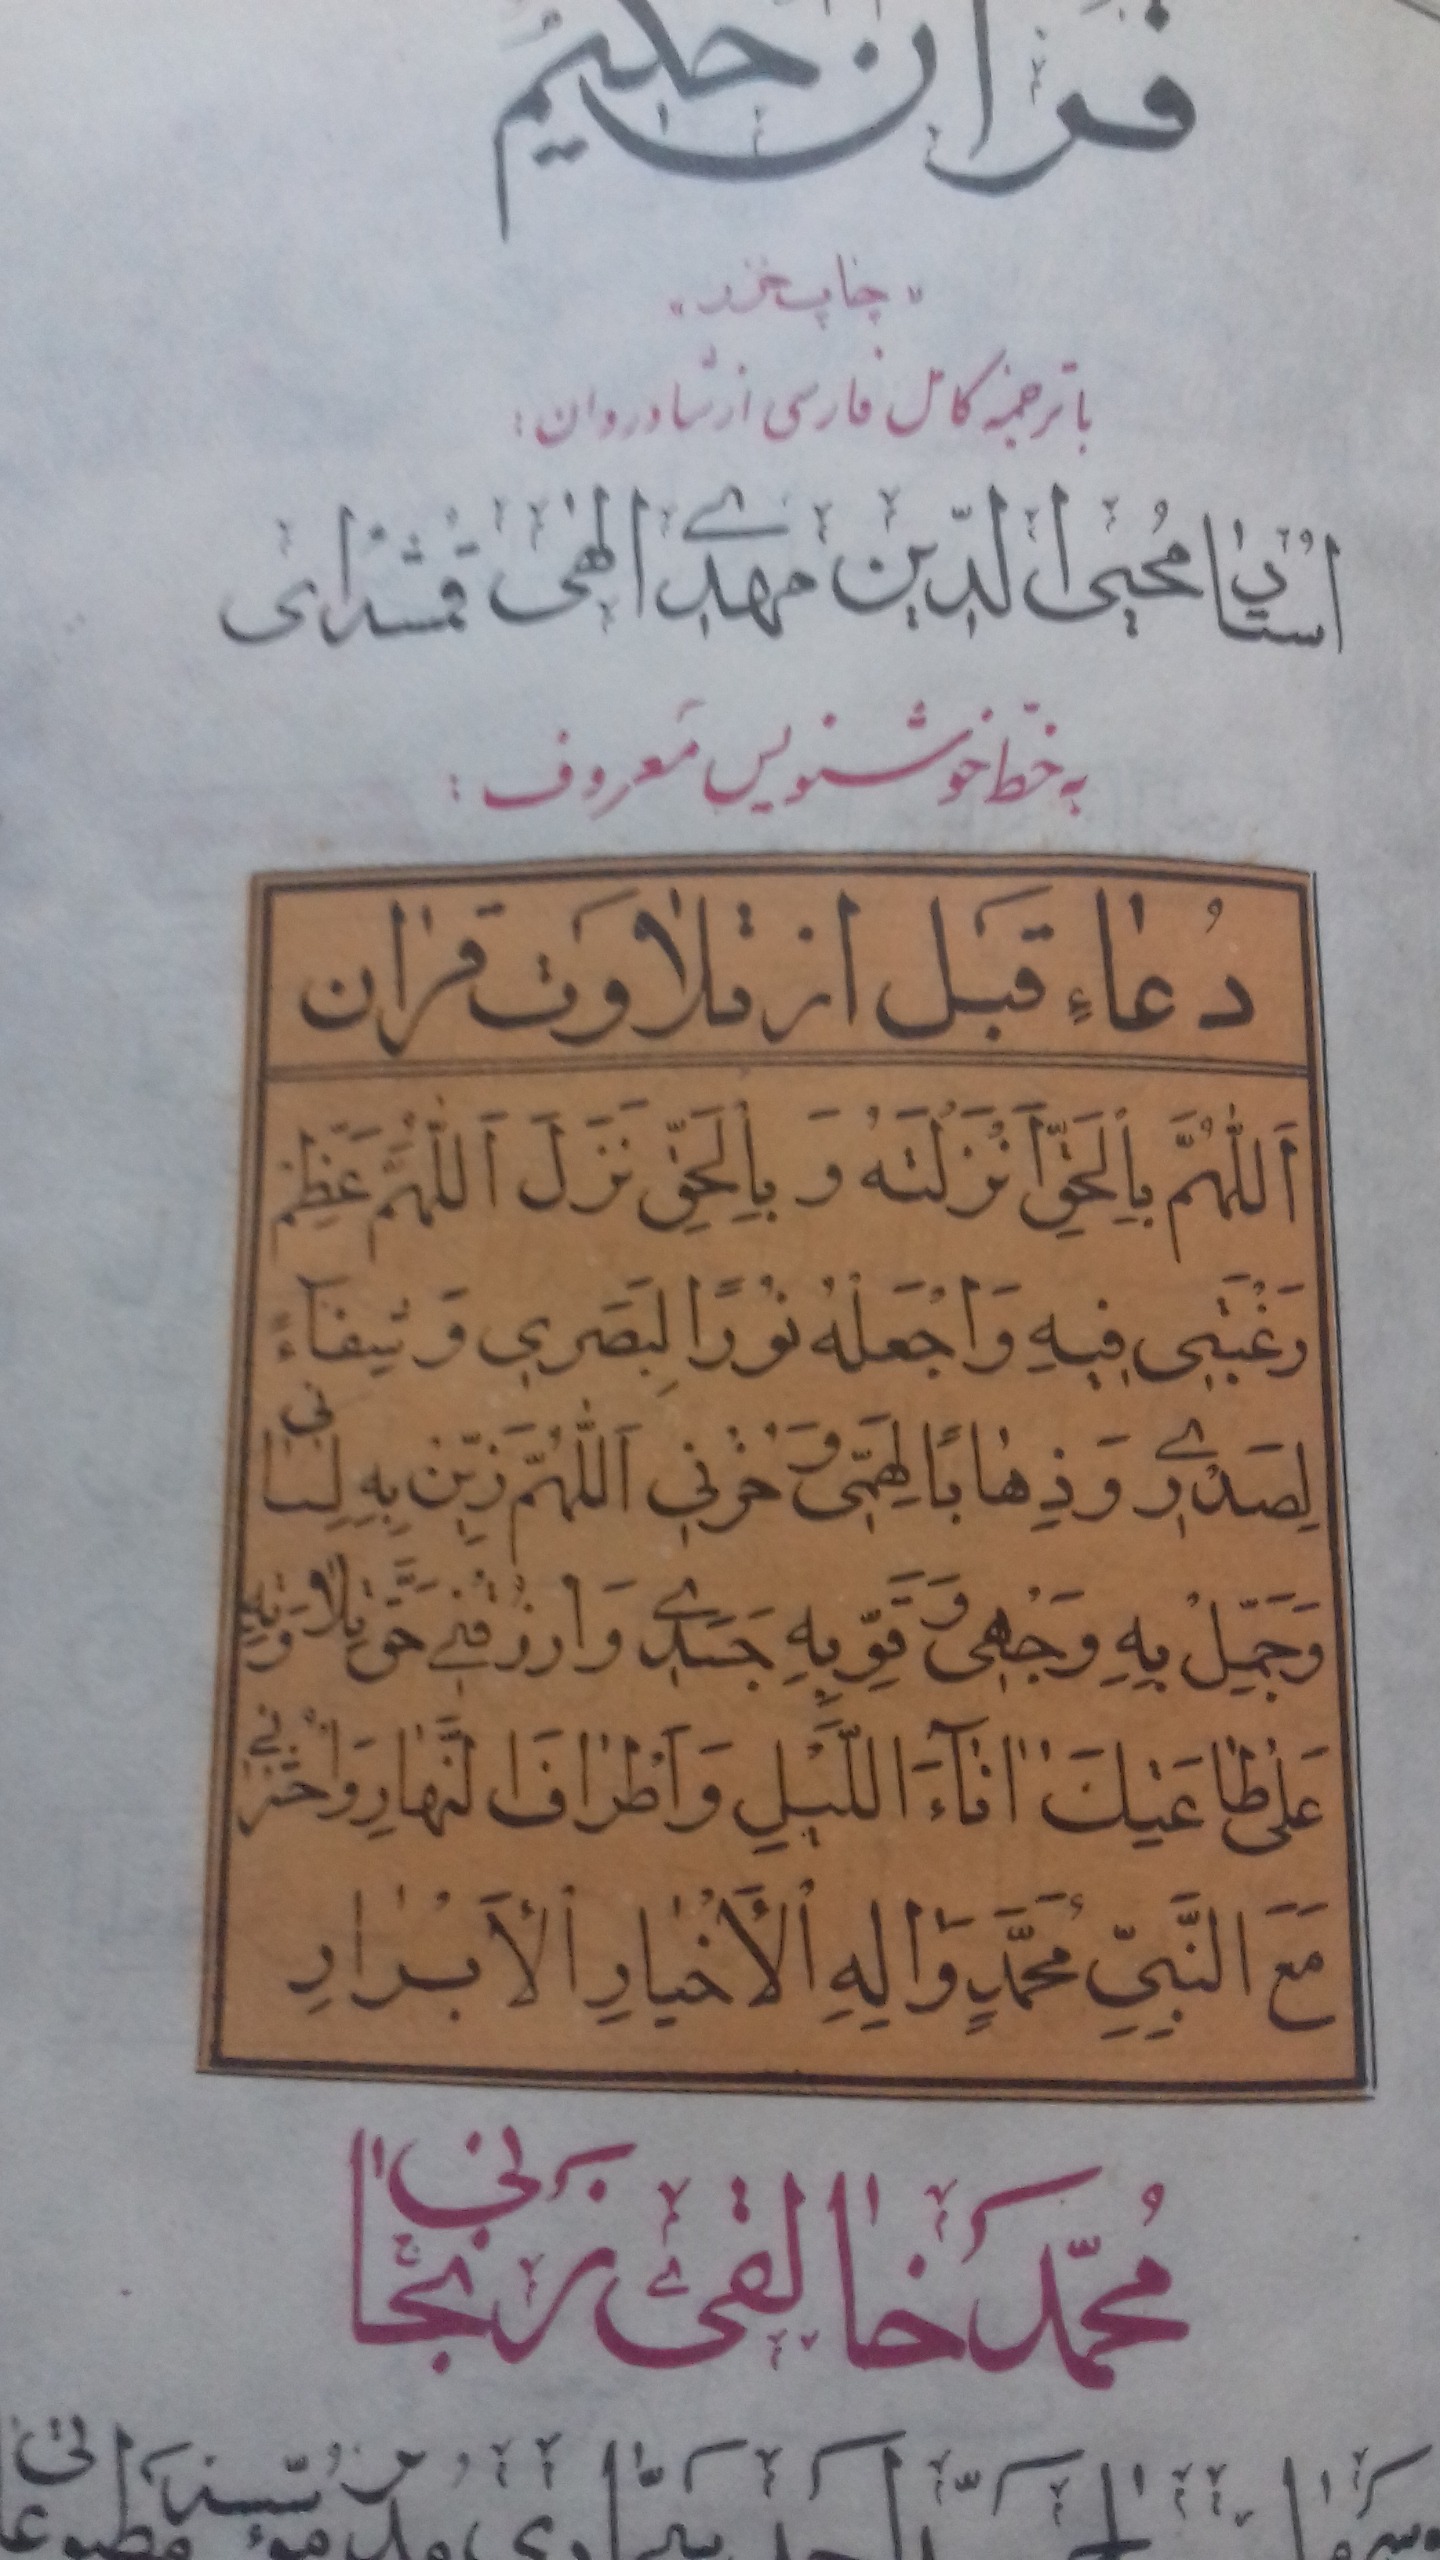 قرآن حکیم
"چاپ خزر"
با ترجمه کامل فارسی از شادروان:
استاد محیی الدین مهدی الهی قمشه‌ای
به خط خوشنویس معروف:
دُعاءِ قبل از تلاوت قرآن
اَللّٰهُمَّ بِالْحَقِّ اَنْزَلْتَهُ وَ بِالْحَقِّ نَزَلَ اَللّٰهُمَّ عَظِّمْ
رَغْبَتِی فِیهِ وَاجْعَلْهُ نُورًا لِبَصَرِی وَ شِفَآءً
لِصَدْرِی وَ ذِهَابًا لِهَمِّی وَ حُزْنِی اَللّٰهُمَّ زَیِّنْ بِهِ لِسَانِی
وَ جَمِّلْ بِهِ وَجْهِی وَ قَوِّ بِهِ جَسَدِی وَ ارْزُقْنِی حَقَّ تِلَاوَتِهِ
عَلٰی طَاعَتِكَ اٰنَآءَ اللَّیْلِ وَ اَطْرَافَ النَّهَارِ وَ احْشُرْنِی
مَعَ النَّبِیِّ مُحَمَّدٍ وَ اٰلِهِ الْاَخْیَارِ الْاَبْرَارِ
محمّد خالقی زنجانی